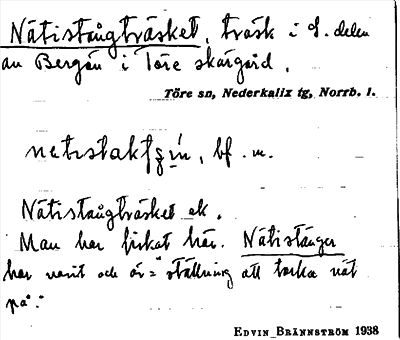 Nätistångträsket, träsk i S. delen
av Bergön i Töre skärgård.
Töre sn, Nederkalix tg, Norrb. l.
bf. m.
Nätistångträsket ek.
Man har fiskat här. Nätistänger
har varit och är = "ställning att torka nät
på".
EDVIN BRÄNNSTRÖM 1938